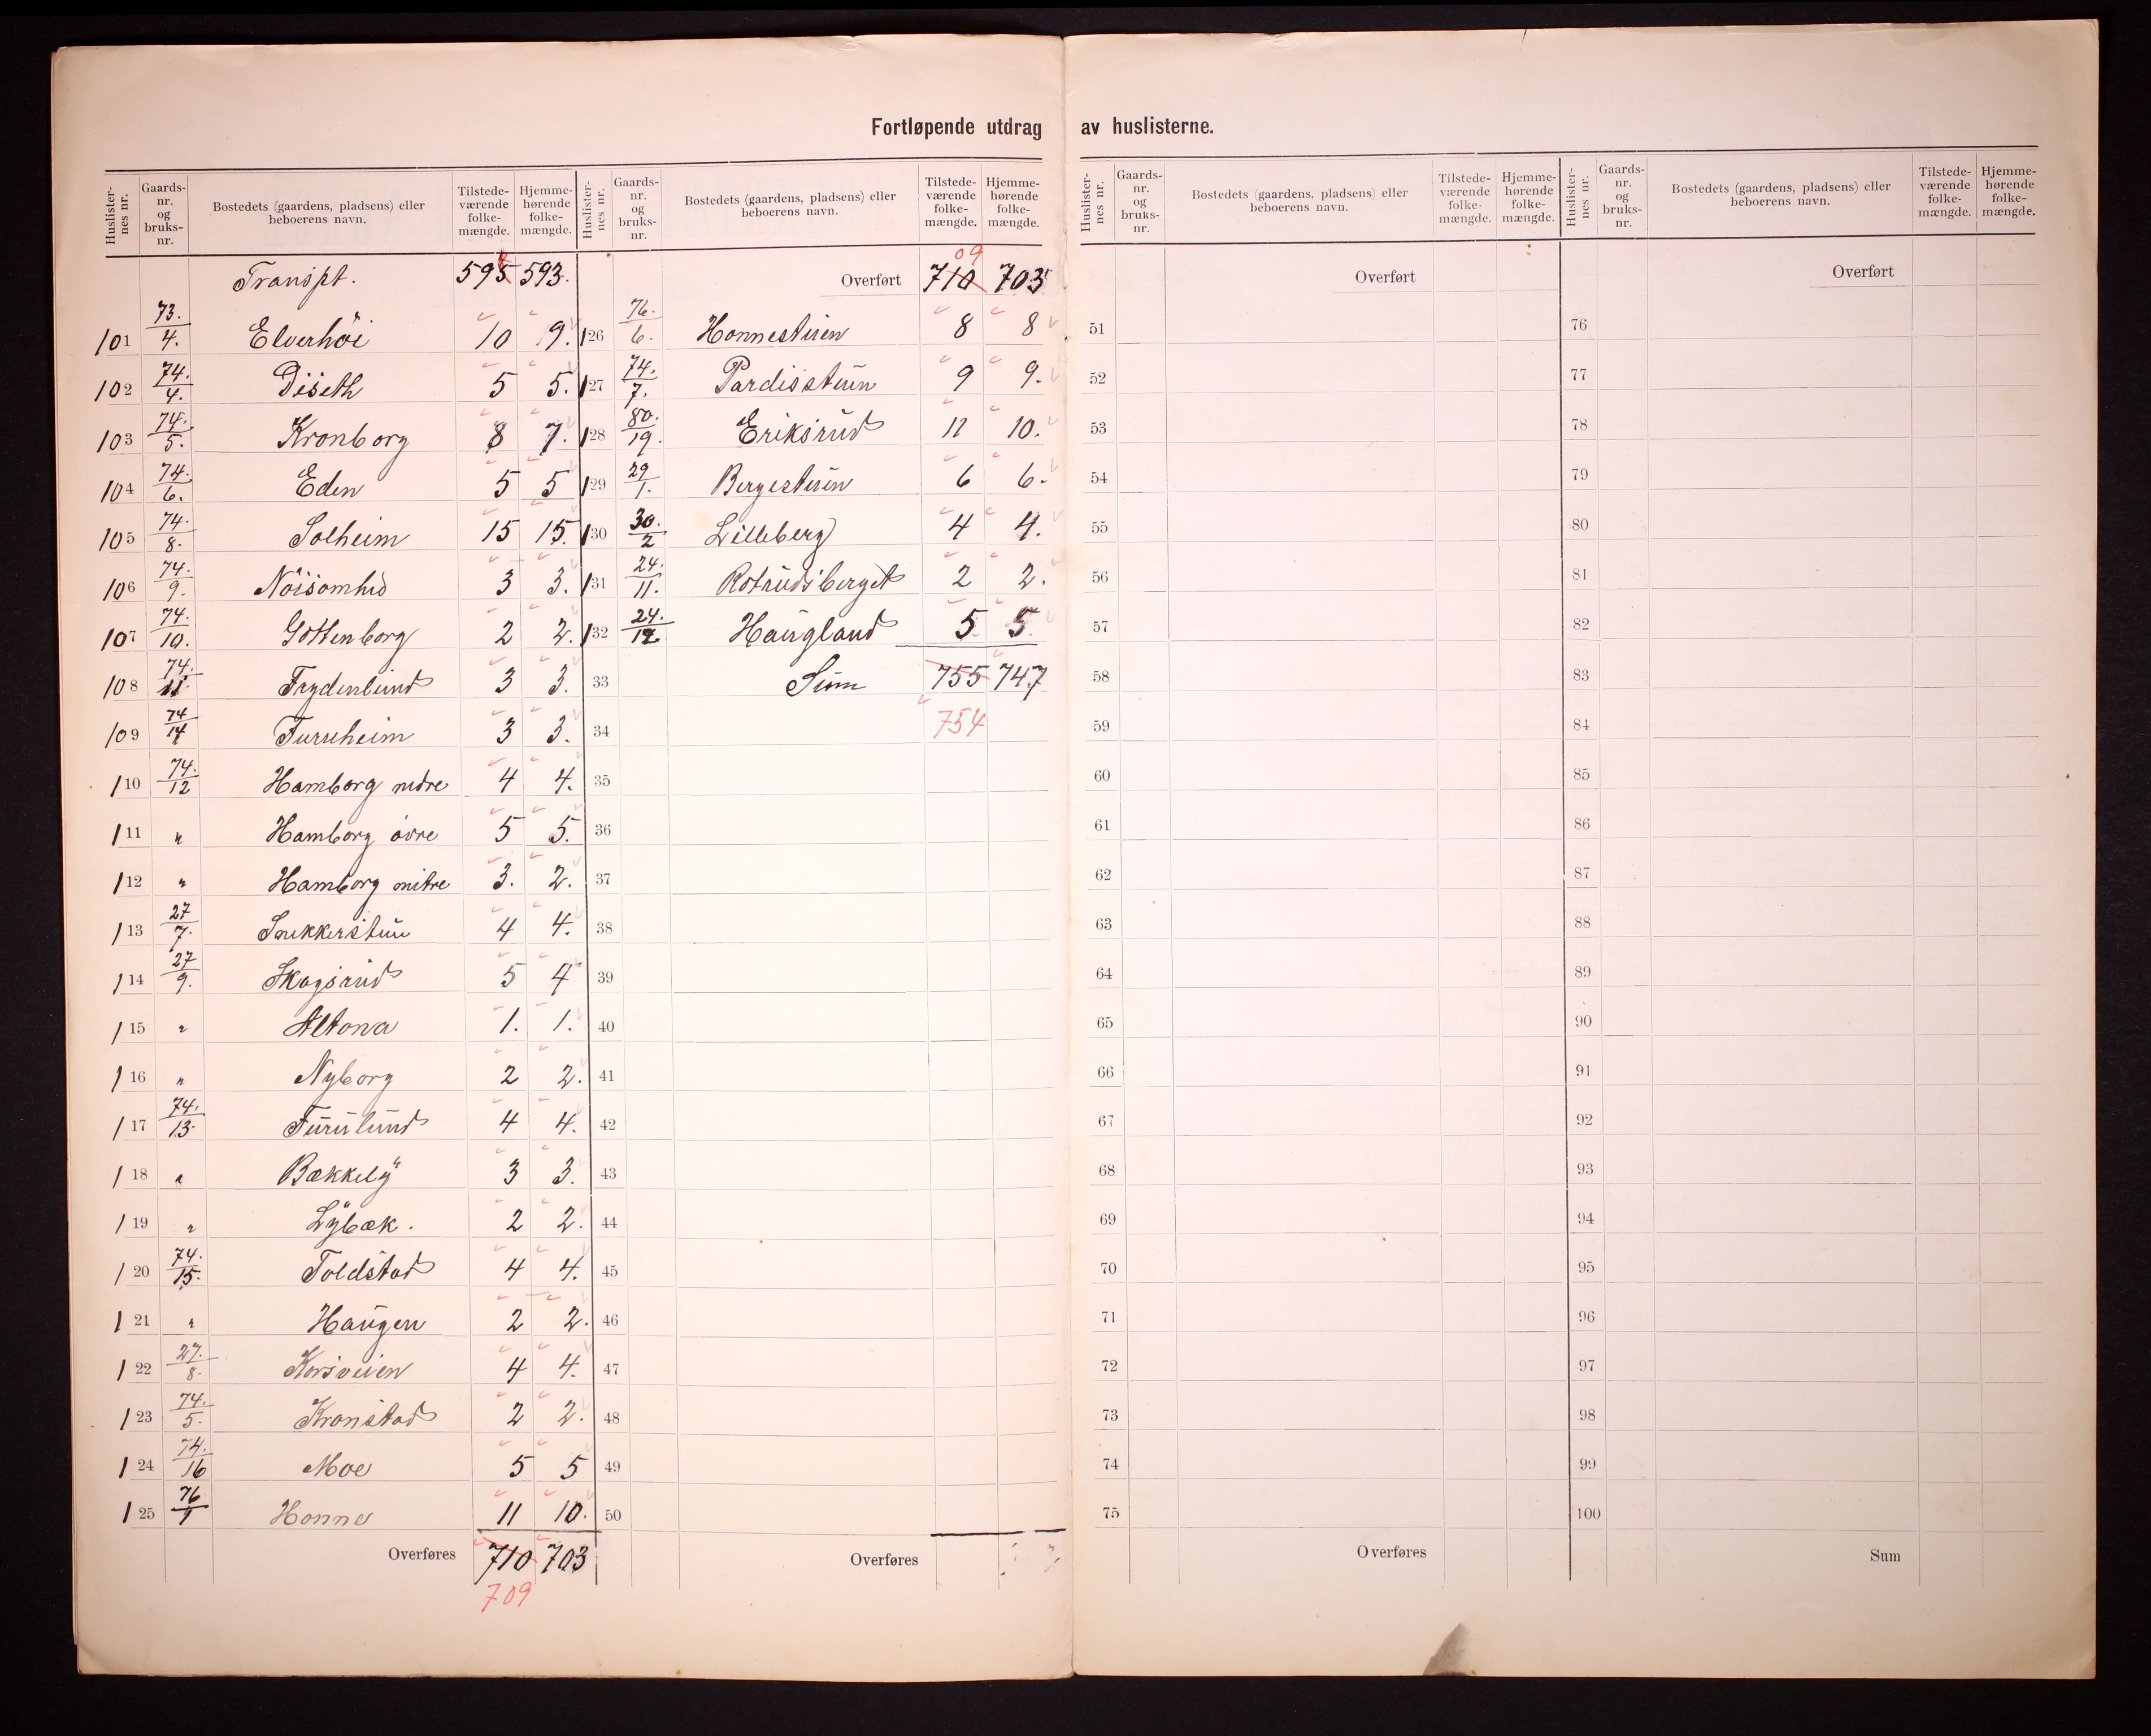 Fortløpende utdrag av huslisterne.
Huslister-nes nr. Gaards-nr. og bruks-nr. Bostedets (gaardens, pladsens) eller beboerens navn. Tilstede-værende folke-mængde. Hjemme-hørende folke-mængde.
Transpt. 595 4 593.
101 73./4. Elverhöi 10 9.
102 74./4. Diseth 5 5.
103 74./5. Kronborg 8 7.
104 74./6. Eden 5 5
105 74./8. Solheim 15 15.
106 74./9. Nöisomhed 3 3.
107 74./10. Gottenborg 2 2.
108 74./11. Frydenlund 3 3.
109 74/14 Furuheim 3 3.
110 74./12 Hamborg nedre 4 4.
111 " Hamborg övre 5 5.
112 " Hamborg mitre 3. 2.
113 27/7. Snekkerstuen 4 4.
114 27/9. Skogsrud 5 4
115 " Altona 1. 1.
116 " Nyborg 2 2.
117 74./13. Furulund 4 4.
118 " Bækkely 3 3.
119 " Lybæk. 2 2.
120 74./15. Toldstad 4 4.
121 " Haugen 2 2.
122 27./8. Korsveien 4 4.
123 74./5. Kronstad 2 2.
124 74./16 Moe 5 5
125 76/1 Honne 11 10.
Overføres 710 703
709
Huslister-nes nr. Gaards-nr. og bruks-nr. Bostedets (gaardens, pladsens) eller beboerens navn. Tilstede-værende folke-mængde. Hjemme-hørende folke-mængde.
09
Overført 710 703
126 76./6. Honnestuen 8 8
127 74./7. Pardisstuen 9 9.
128 80./19. Eriksrud 11 10.
129 29/1. Bergestuen 6 6.
130 30./2 Lilleberg 4 4.
131 24./11. Rotrudsberget 2 2.
132 24./12. Haugland 5. 5.
33 Sum 755 747
34 754
35
36
37
38
39
40
41
42
43
44
45
46
47
48
49
50
Overføres
Huslister-nes nr. Gaards-nr. og bruks-nr. Bostedets (gaardens, pladsens) eller beboerens navn. Tilstede-værende folke-mængde. Hjemme-hørende folke-mængde.
Overført
51
52
53
54
55
56
57
58
59
60
61
62
63
64
65
66
67
68
69
70
71
72
73
74
75
Overføres
Huslister-nes nr. Gaards-nr. og bruks-nr. Bostedets (gaardens, pladsens) eller beboerens navn. Tilstede-værende folke-mængde. Hjemme-hørende folke-mængde.
Overført
76
77
78
79
80
81
82
83
84
85
86
87
88
89
90
91
92
93
94
95
96
97
98
99
100
Sum